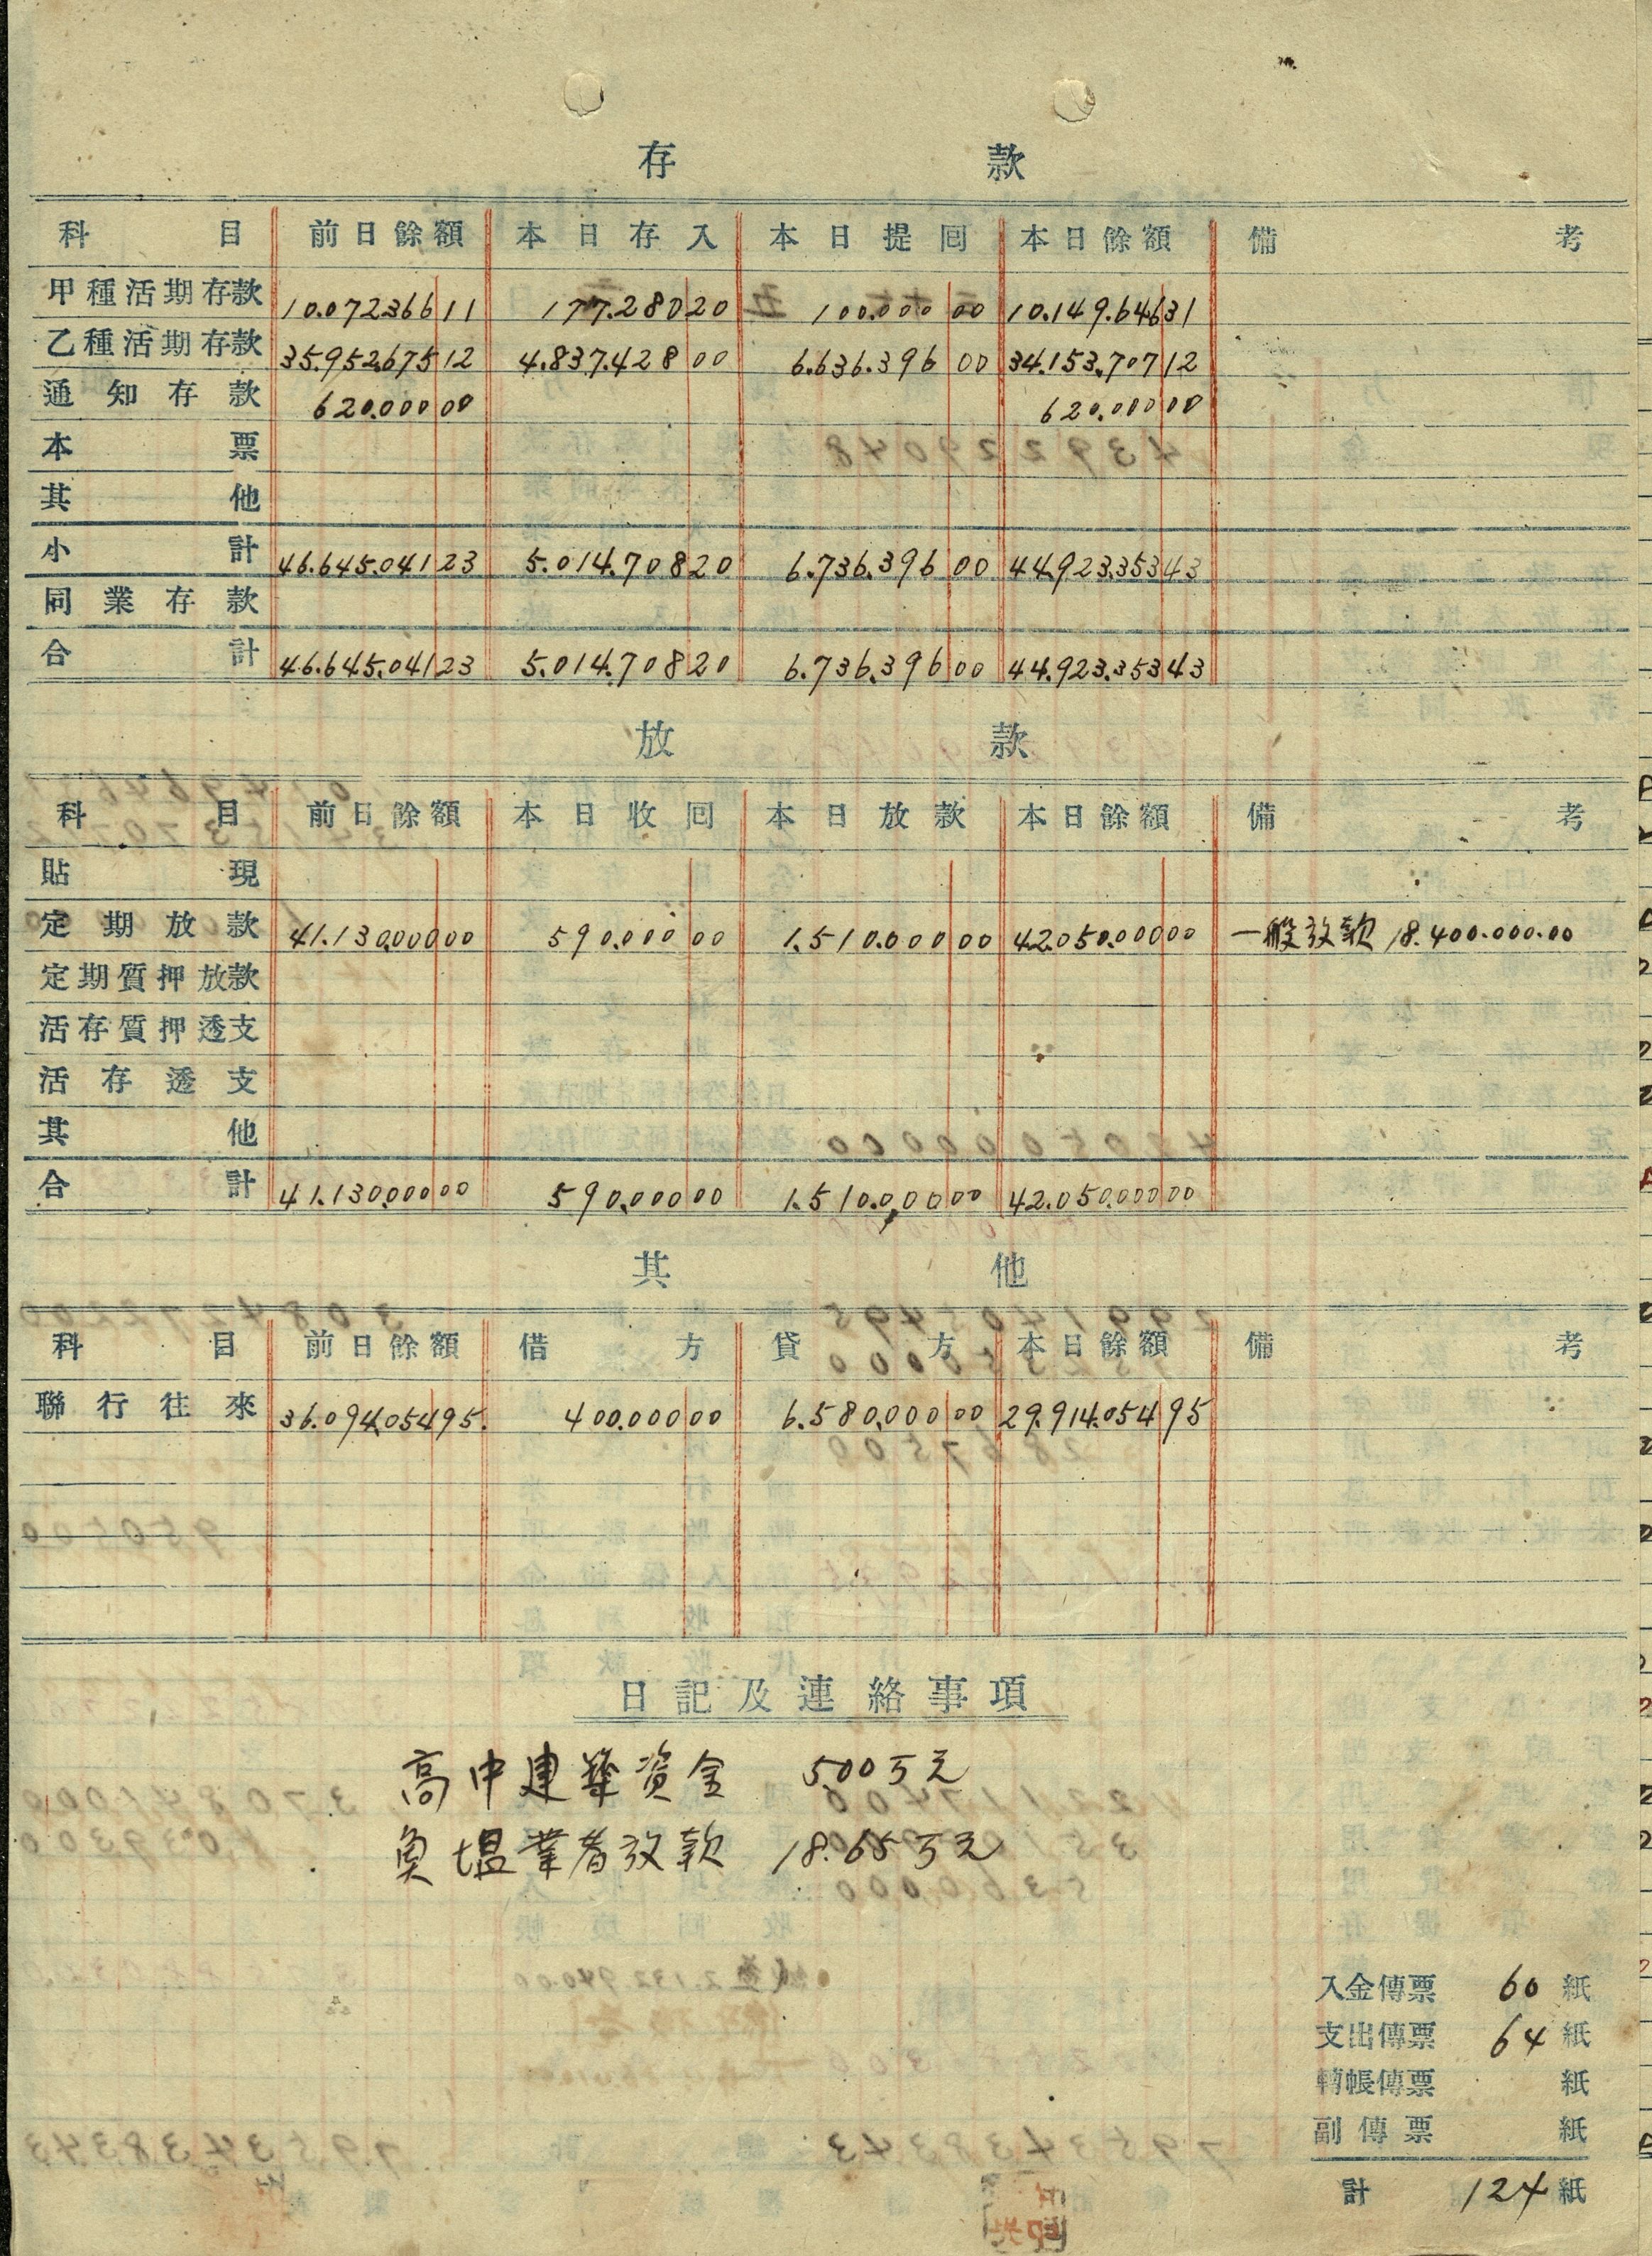 存款
科目 前日餘額 本日存入 本日提囘 本日餘額 備考
甲種活期存款 10.072.366 11 177.280 20 100.000 00 10.149.646 31
乙種活期存款 35.952.675 12 4.837.428 00 6.636.396 00 34.153.707 12
通知存款 620.000 00 620.000 00
本票
其他
小計 46.645.041 23 5.014.708 20 6.736.396 00 44.923.353 43
同業存款
合計 46.645.041 23 5.014.708 20 6.736.396 00 44.923.353 43
放款
科目 前日餘額 本日收囘 本日放款 本日餘額 備考
貼現
定期放款 41.130.000 00 590.000 00 1.510.000 00 42.050.000 00 一般放款 18.400.000.00
定期質押放款
活存質押透支
活存透支
其他
合計 41.130.000 00 590.000 00 1.510.000 00 42.050.000 00
其他
科目 前日餘額 借方 貸方 本日餘額 備考
聯行往來 36.094.054 95. 400.000 00 6.580.000 00 29.914.054 95
日記及連絡事項
高中建築資金 500万元
魚塭業者放款 18.65万元
入金傳票 60 紙
支出傳票 64 紙
轉帳傳票 紙
副傳票 紙
計 124 紙